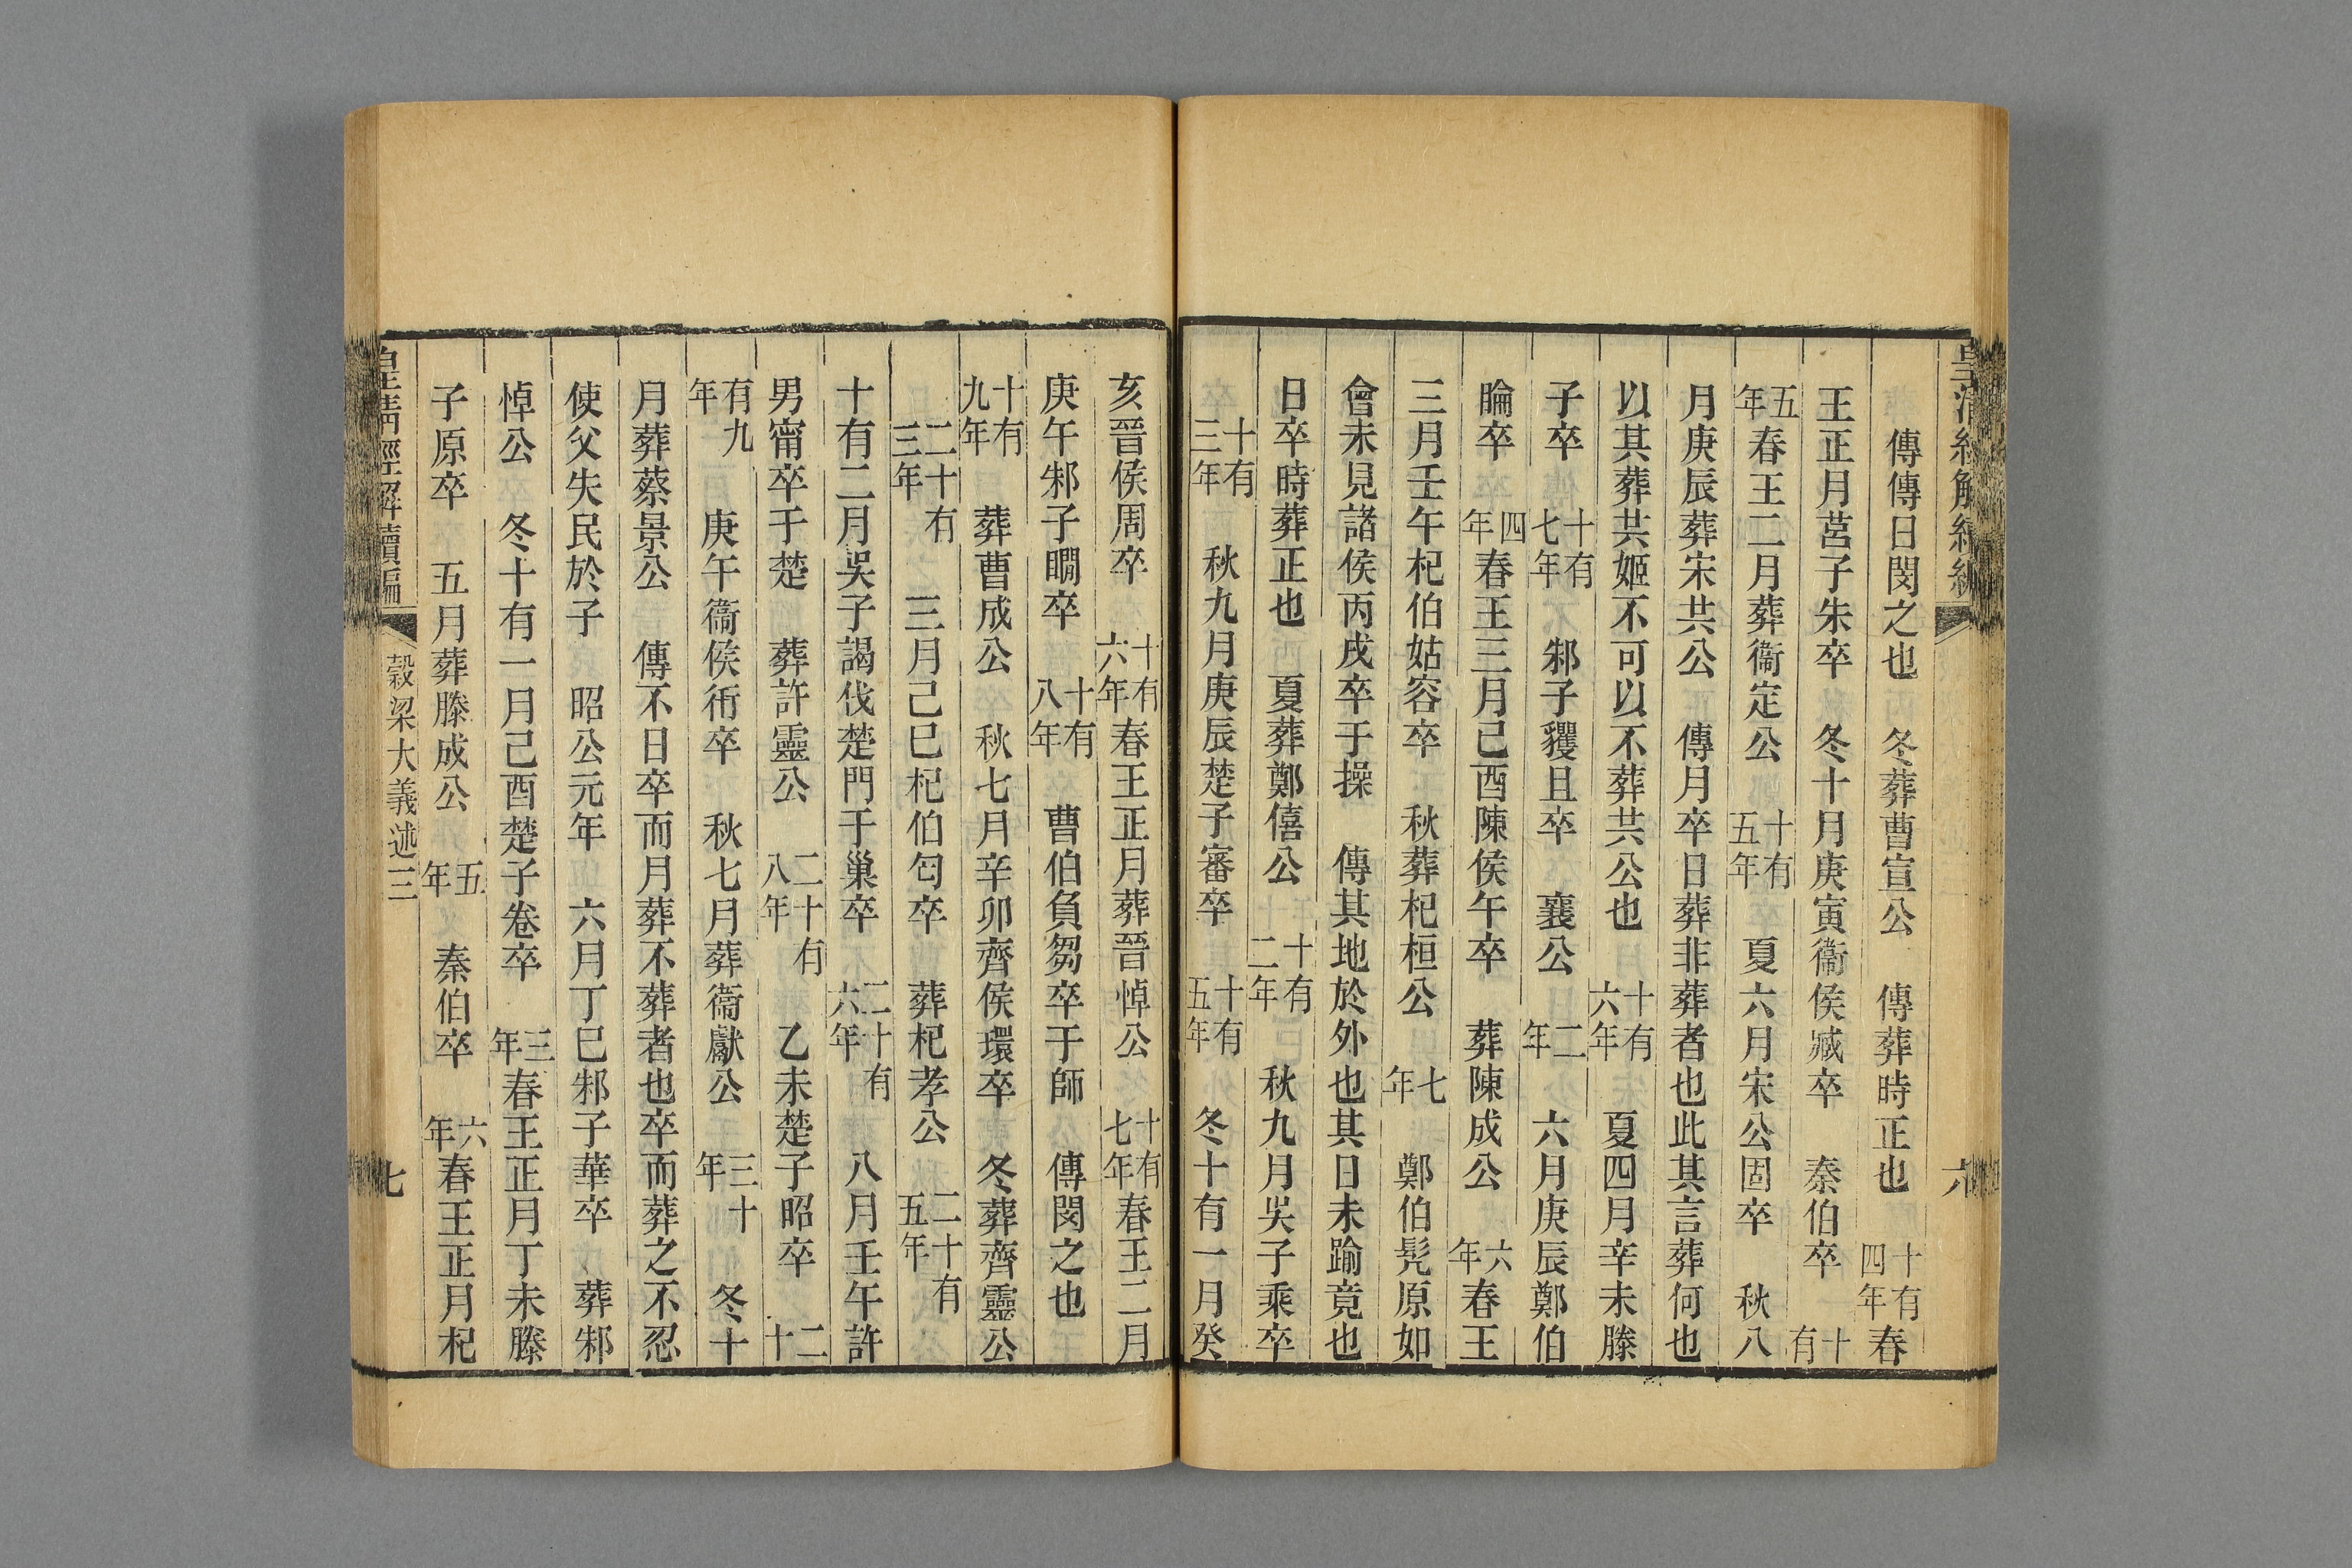 傳傳日閔之也　冬葬曹宣公　傳葬時正也　十有四年春
王正月莒子朱卒　冬十月庚寅衞侯臧卒　秦伯卒　十有
五年春王二月葬衞定公　十有五年　夏六月宋公固卒　秋八
月庚辰葬宋共公　傳月卒日葬非葬者也此其言葬何也
以其葬共姬不可以不葬共公也　十有六年　夏四月辛未滕
子卒　十有七年　邾子貜且卒　襄公　二年　六月庚辰鄭伯
睔卒　四年春王三月己酉陳侯午卒　葬陳成公　六年春王
三月壬午杞伯姑容卒　秋葬杞桓公　七年　鄭伯髠原如
會未見諸侯丙戌卒于操　傳其地於外也其日未踰竟也
日卒時葬正也　夏葬鄭僖公　十有二年　秋九月吳子乘卒
十有三年　秋九月庚辰楚子審卒　十有五年　冬十有一月癸
亥晉侯周卒　十有六年春王正月葬晉悼公　十有七年春王二月
庚午邾子瞯卒　十有八年　曹伯負芻卒于師　傳閔之也
十有九年　葬曹成公　秋七月辛卯齊侯環卒　冬葬齊靈公
二十有三年　三月己巳杞伯匄卒　葬杞孝公　二十有五年
十有二月吳子謁伐楚門于巢卒　二十有六年　八月壬午許
男甯卒于楚　葬許靈公　二十有八年　乙未楚子昭卒　二十
有九年　庚午衞侯衎卒　秋七月葬衞獻公　三十年　冬十
月葬蔡景公　傳不日卒而月葬不葬者也卒而葬之不忍
使父失民於子　昭公元年　六月丁巳邾子華卒　葬邾
悼公　冬十有一月己酉楚子卷卒　三年春王正月丁未滕
子原卒　五月葬滕成公　五年　秦伯卒　六年春王正月杞
皇清經解續編　穀梁大義述三　七